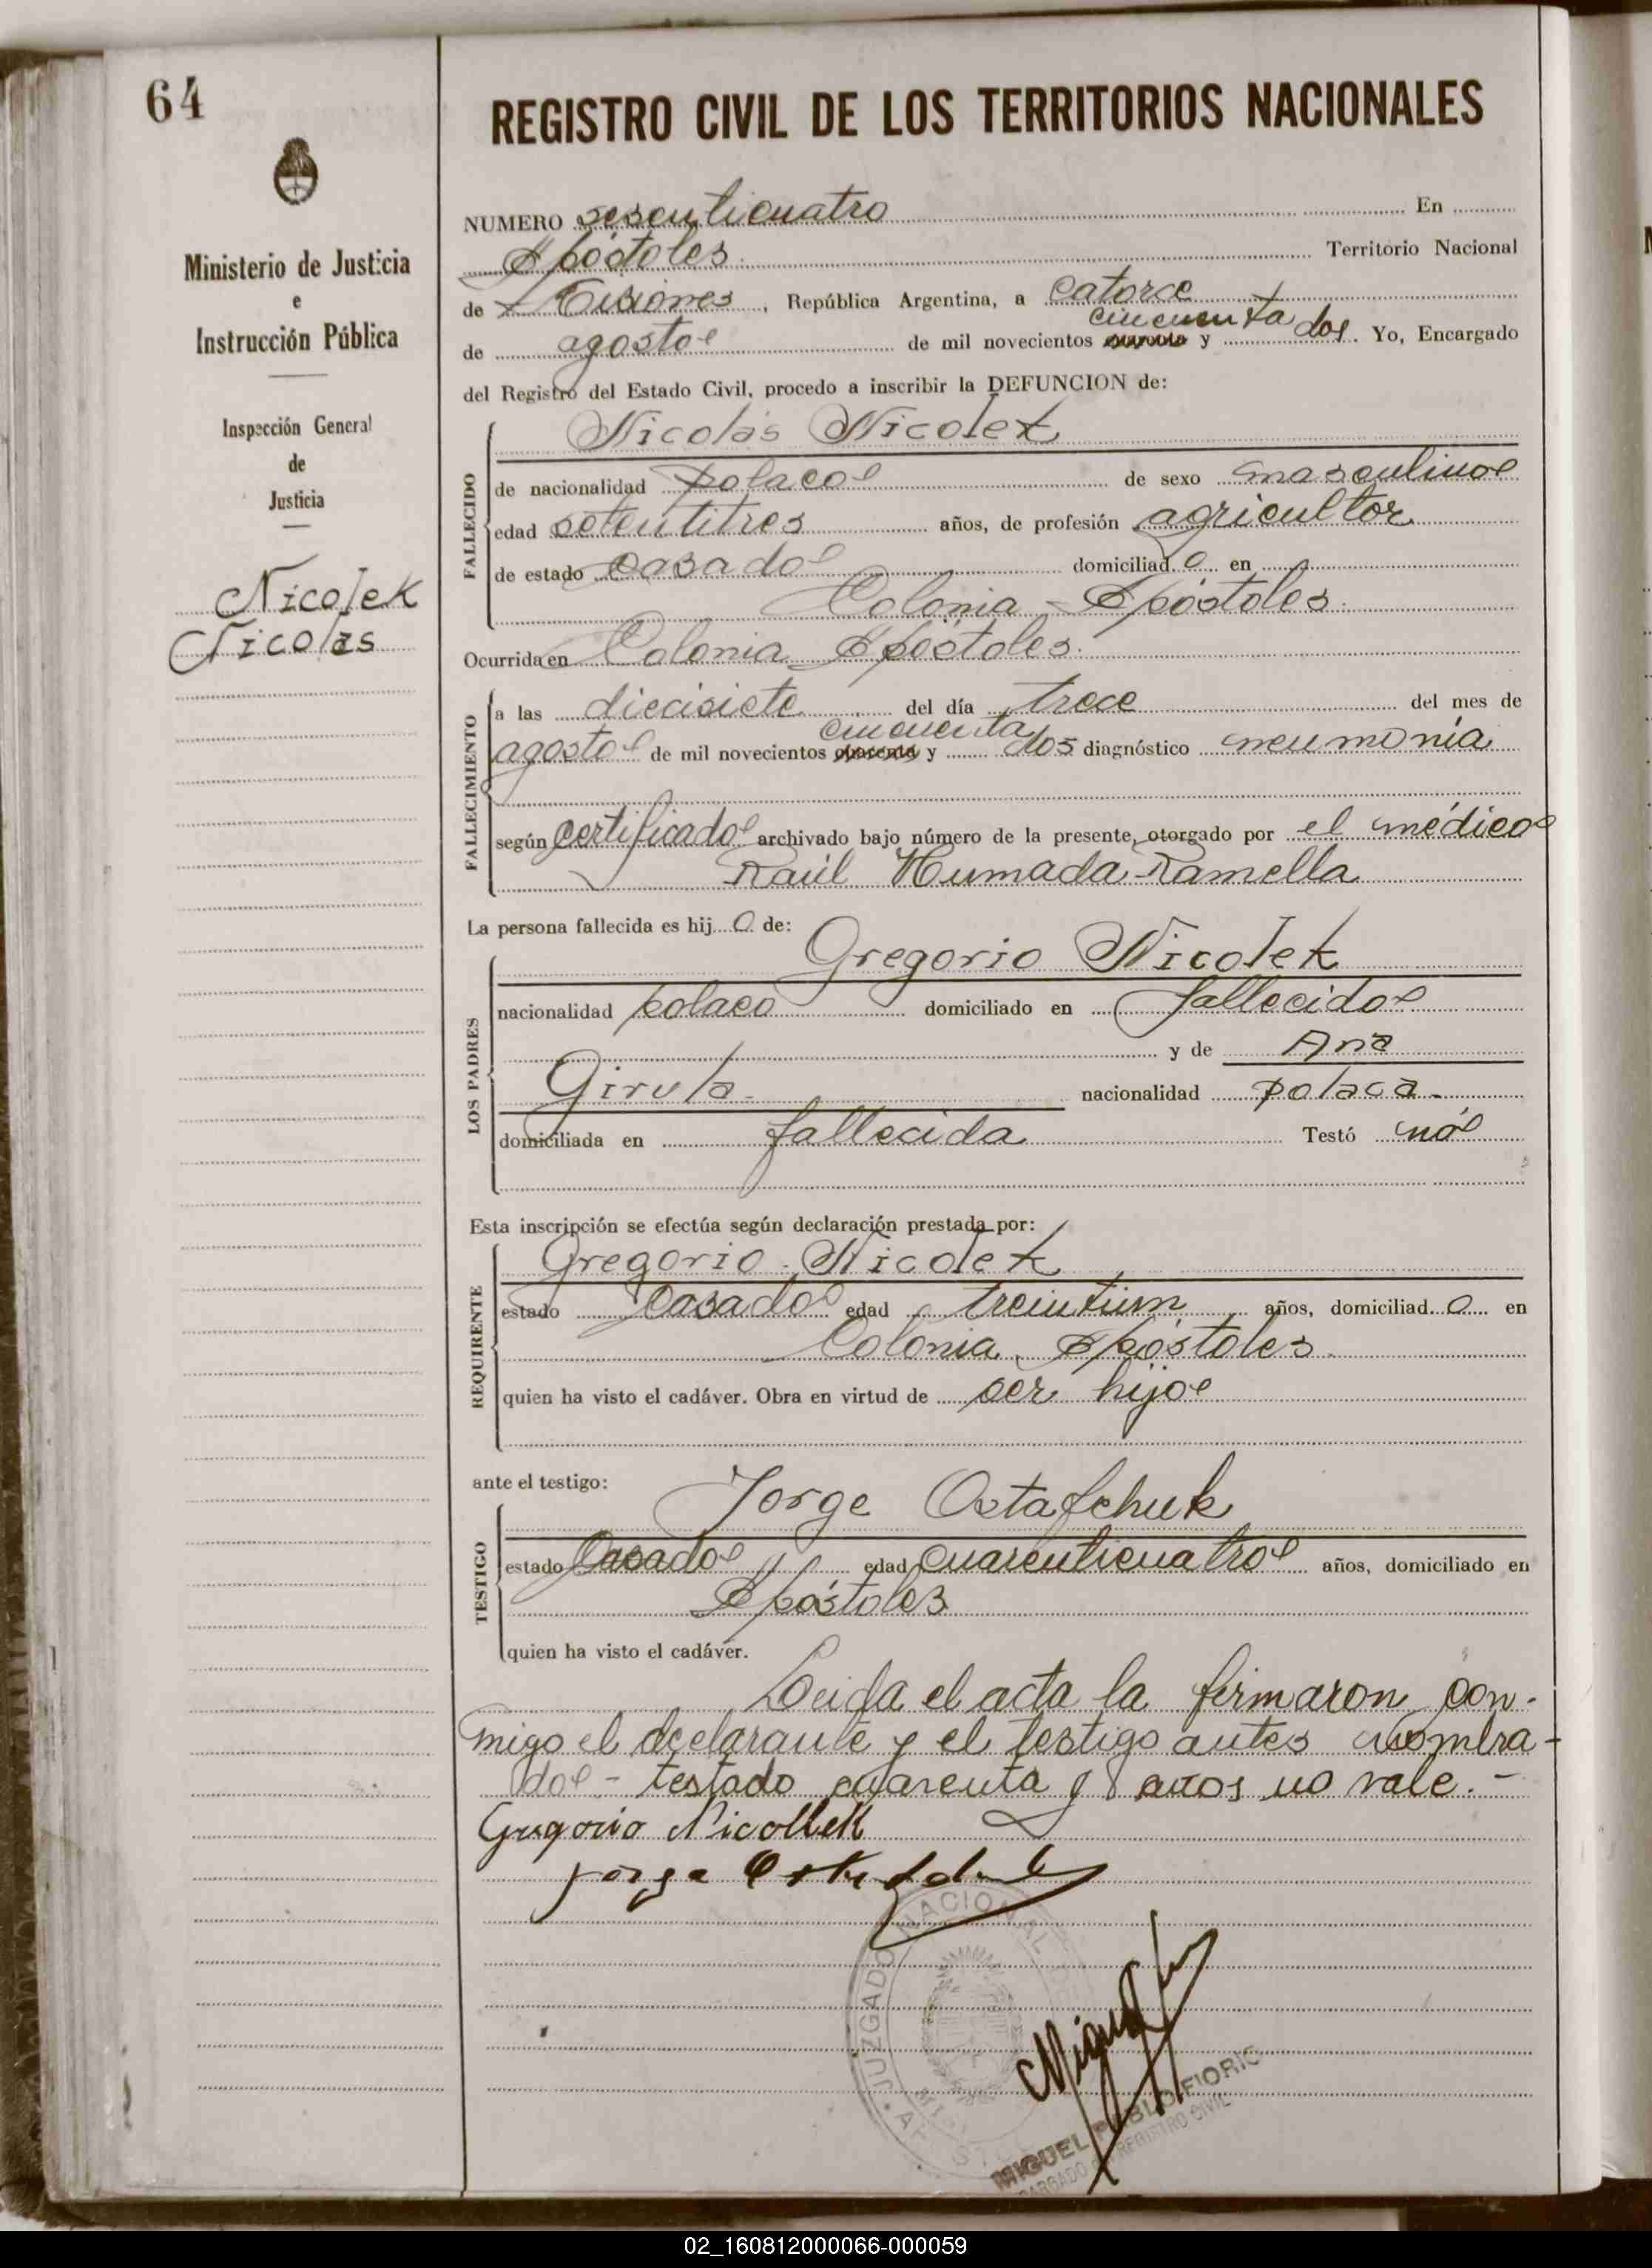 64
Ministerio de Justicia
e
Instrucción Pública
Inspección General
de
Justicia
Nicolek
Nicolas
REGISTRO CIVIL DE LOS TERRITORIOS NACIONALES
NUMERO sesenticuatro En
Apóstoles Territorio Nacional
de Misiones, República Argentina, a catorce
cincuenta
de agosto de mil novecientos y dos. Yo, Encargado
del Registro del Estado Civil, procedo a inscribir la DEFUNCION de:
Nicolás Nicolek
FALLECIDO
de nacionalidad polaco de sexo masculino
edad setentitres años, de profesión agricultor
de estado casado domiciliad o en
Colonia - Apóstoles
Ocurrida en Colonia Apóstoles
FALLECIMIENTO
a las diecisiete del día trece del mes de
cincuenta
agosto de mil novecientos cuarenta y dos diagnóstico neumonía
según certificado archivado bajo número de la presente, otorgado por el médico
Raúl Humada Ramella
La persona fallecida es hij o de:
LOS PADRES
Gregorio Nicolek
nacionalidad polaco domiciliado en fallecido
y de Ana
Girula nacionalidad polaca.
domiciliada en fallecida Testó nó
Esta inscripción se efectúa según declaración prestada por:
REQUIRENTE
Gregorio Nicolek
estado casado edad treintiun años, domiciliad o en
Colonia Apóstoles
quien ha visto el cadáver. Obra en virtud de ser hijo
ante el testigo:
TESTIGO
Jorge Ostafchuk
estado casado edad cuarenticuatro años, domiciliado en
Apóstoles
quien ha visto el cadáver.
Leida el acta la firmaron con-
migo el declarante y el testigo antes nombra-
do - testado cuarenta y 8 años no vale. -
Gregorio Nicollek
Jorge
JUZGADO NACIONAL DE
Miguel
MIGUEL PABLO FIORIO
ENCARGADO REGISTRO CIVIL
02_160812000066-000059